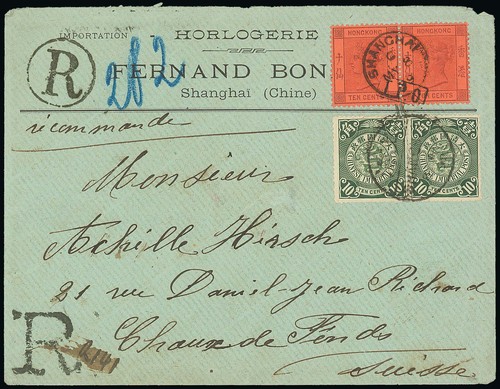 IMPORTATION
HORLOGERIE
FERNAND BON
Shanghaï (Chine)
R
282
recommandé
HONGKONG HONGKONG
TEN CENTS
SHANGHAI
I.P.O.
10 TEN CENTS 10
Monsieur
Achille Hirsch
21 rue Daniel-Jean Richard
Chaux de Fonds
Suisse
R